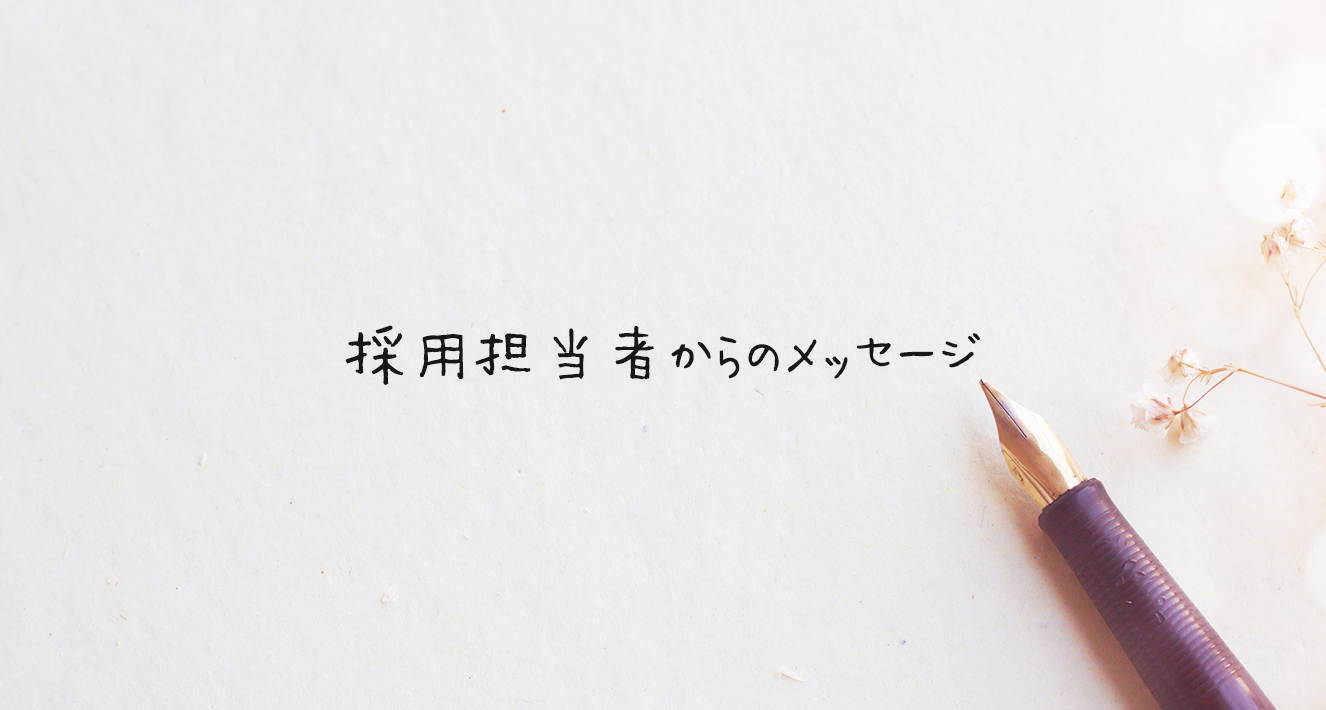 採用担当者からのメッセージ